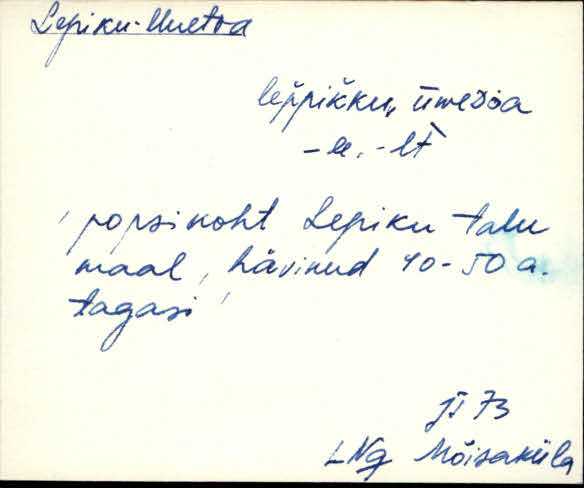 Lepiku-Uuetoa
lep̆pikku, ūweδ́oa
-le, -lt̀
'popsikoht Lepiku talu
maal, hävinud 40-50 a.
tagasi'
JI 73
LNg Mõisaküla